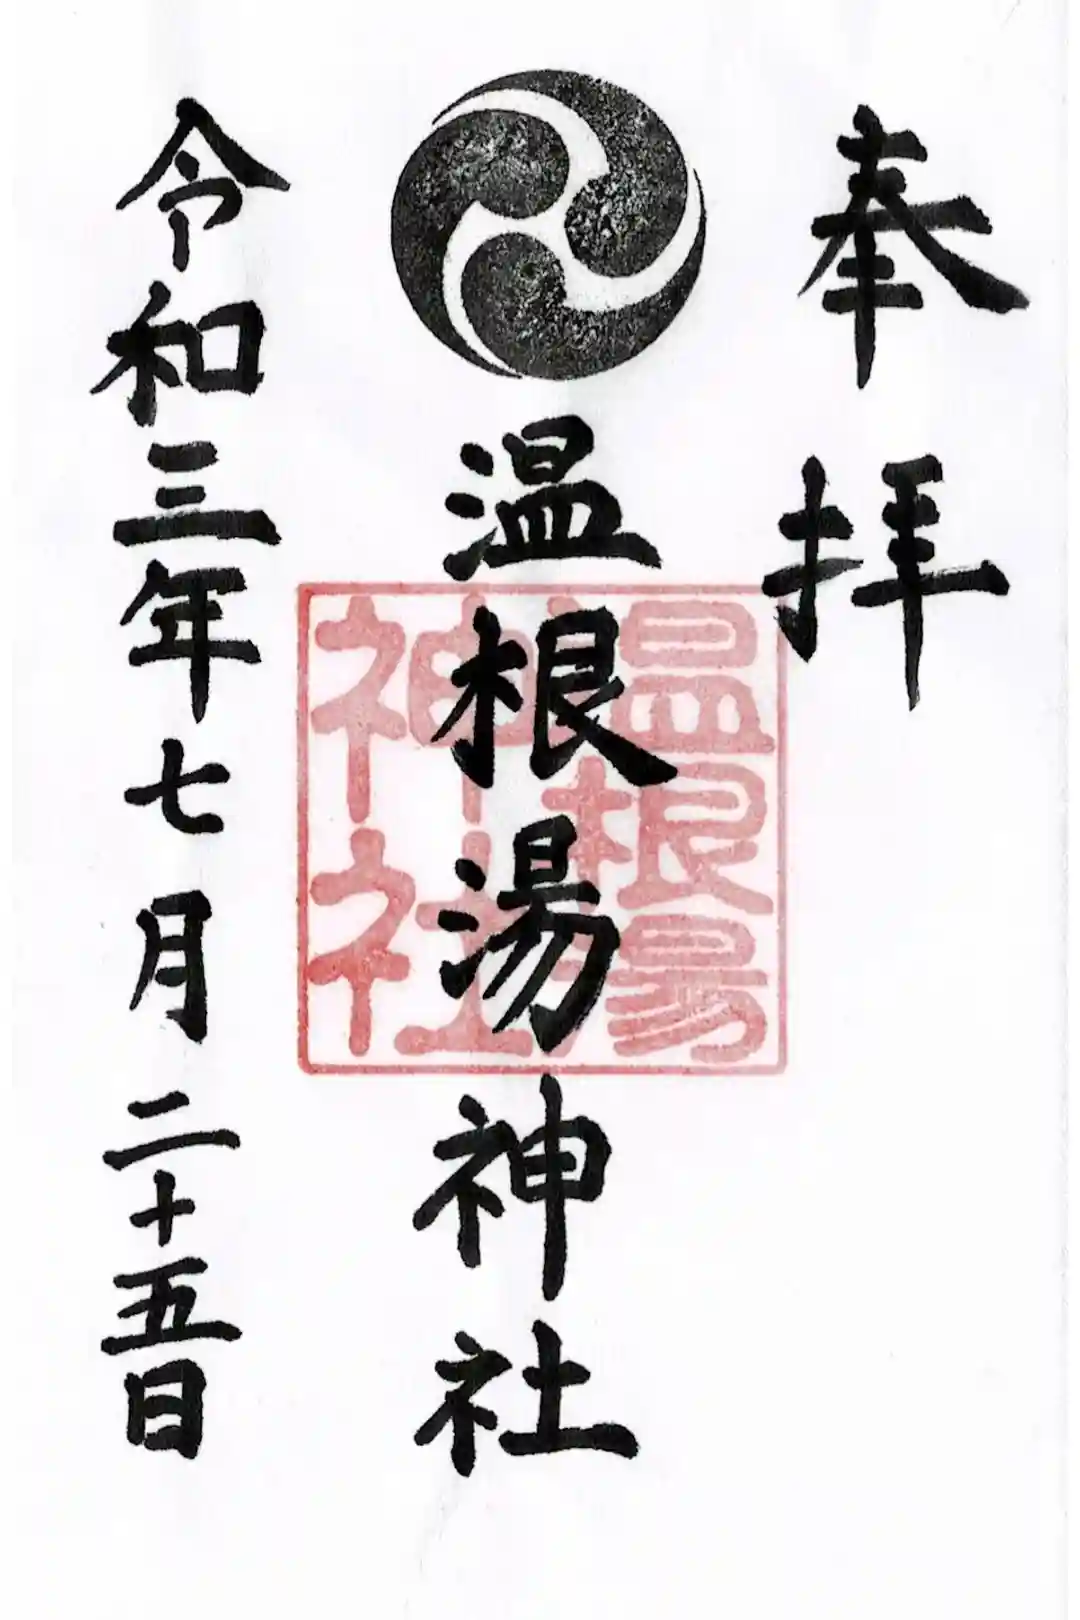 奉拝
温根湯神社
温根湯
神社
令和三年七月二十五日